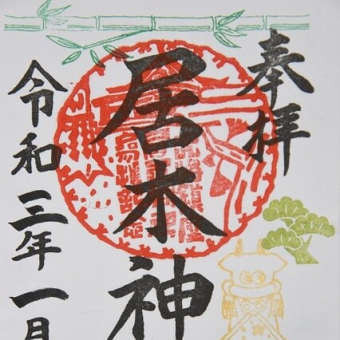 奉拝
居木神
令和三年一月